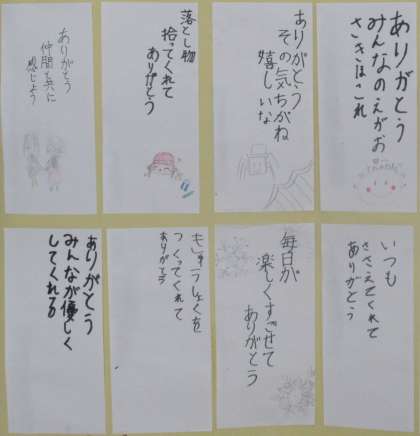 ありがとう
みんなのえがお
ささほこれ
ありがとう
その気ちがね
嬉しいな
落とし物
拾ってくれて
ありがとう
ありがとう
仲間と共に
感じよう
いつも
ささえてくれて
ありがとう
毎日が
楽しくすごせて
ありがとう
つくってくれて
ありがとう
ありがとう
みんなが優しく
してくれる